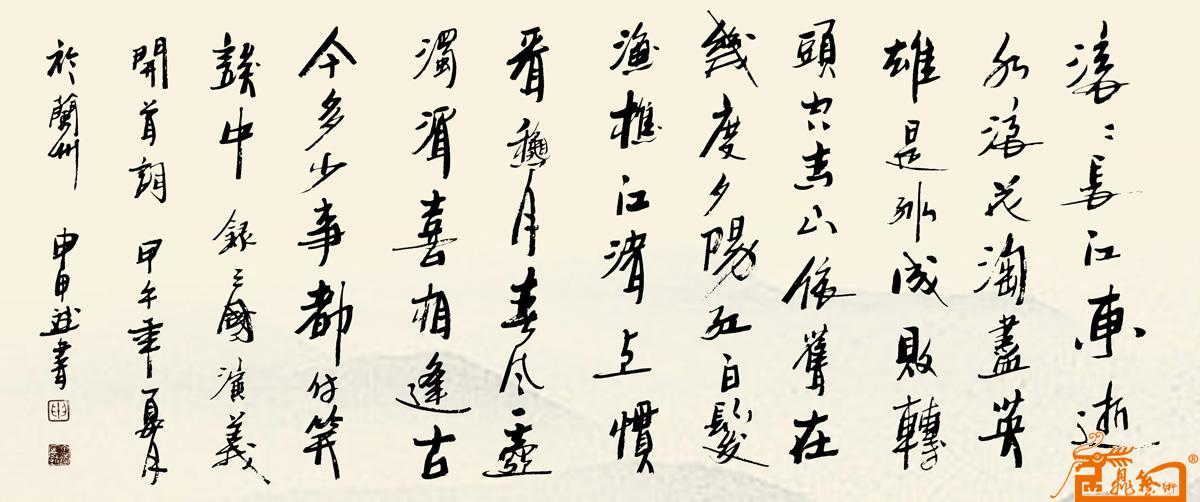 滾〻長江東逝
水浪花淘盡英
雄是非成敗轉
頭空青山依舊在
幾度夕陽紅白髮
漁樵江渚上慣
看穐月春风一壺
濁酒喜相逢古
今多少事都付笑
談中 錄三國演義
開首詞 甲午年夏月
於蘭州 申 書